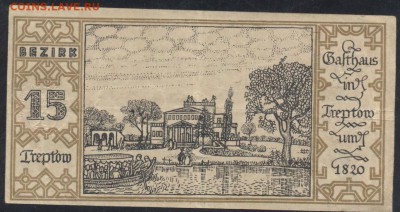 COINS.LAVE.RU
BEZIRK
15
Treptow
Gasthaus
in
Treptow
um
1820